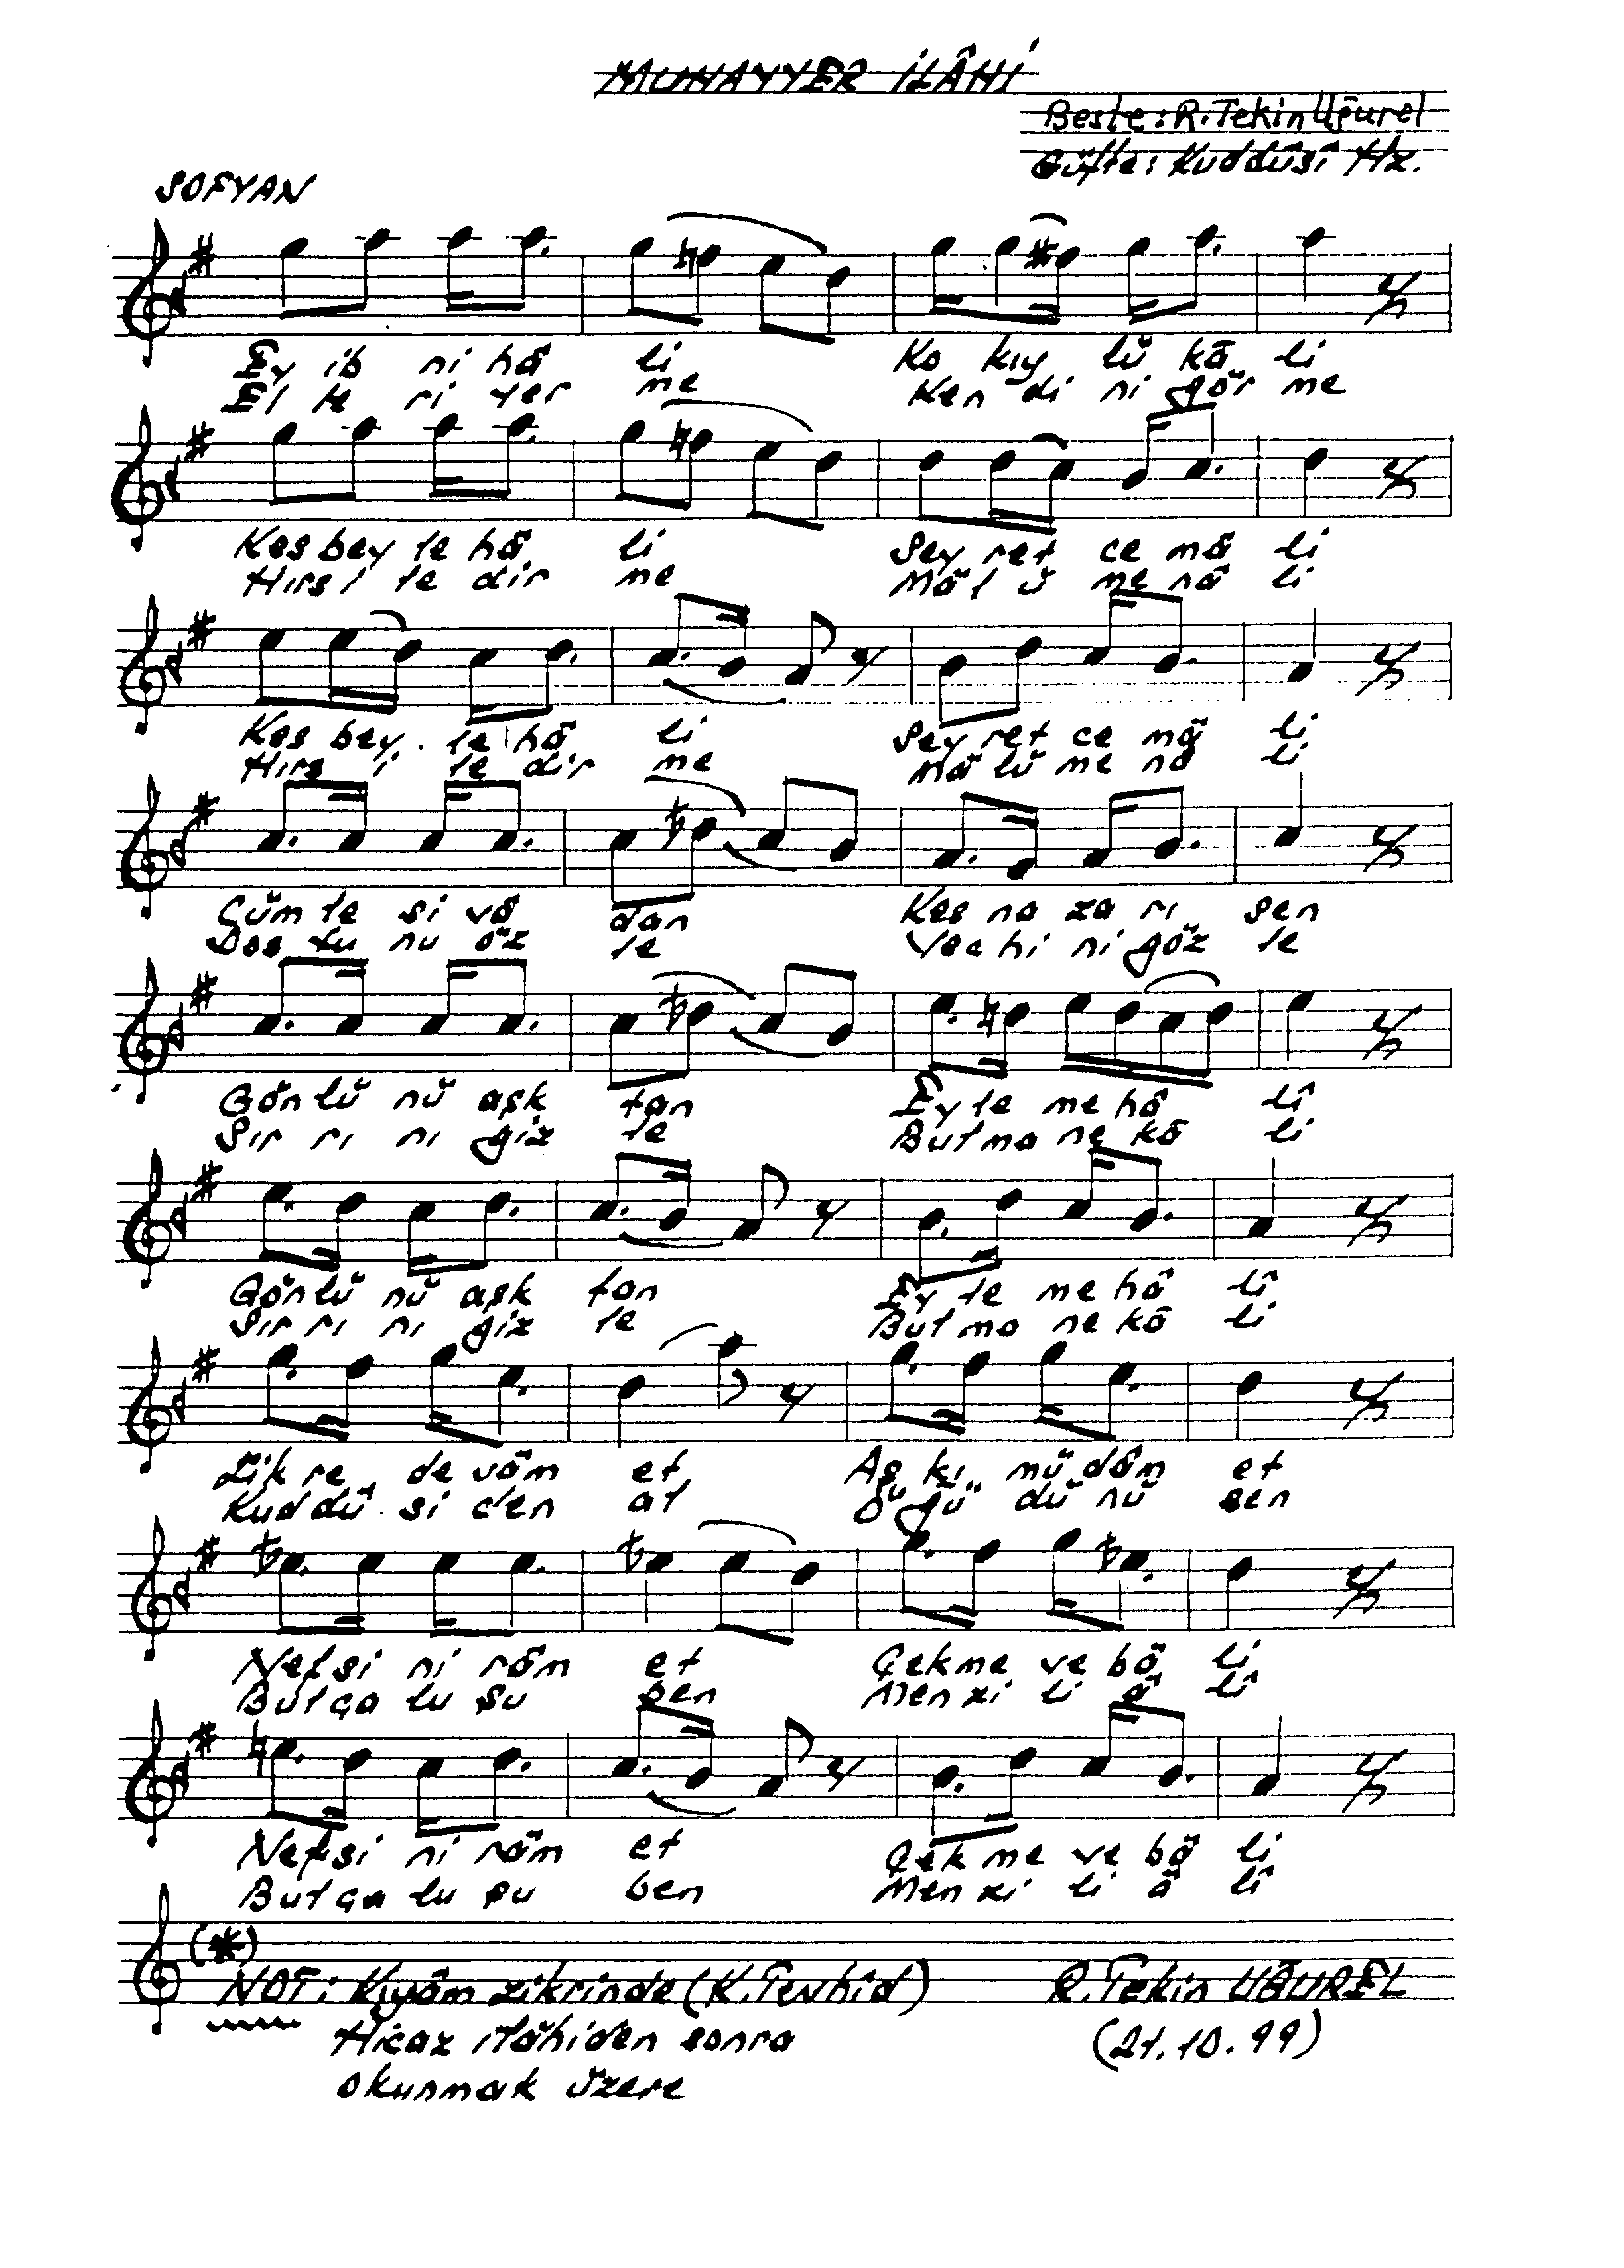 MUHAYYER İLÂHİ
Beste: R. Tekin Uğurel
Güfte: Kuddûsî Hz.
SOFYAN
Ey ib ni hâ li Ko kıy lü kâ li
El le ri yer me Ken di ni gör me
Kes bey le hâ li Sey ret ce mâ li
Hırs i le dir me Mâl ü me nâ li
Kes bey le hâ li Sey ret ce mâ li
Hırs i le dir me Mâ lü me nâ li
Cüm le si vâ dan Kes na za rı sen
Dos tu nu öz le Vec hi ni göz le
Gön lü nü aşk tan Ey le me hâ lî
Sır rı nı giz le Bul ma ne kâ li
Gön lü nü aşk tan Ey le me hâ lî
Sır rı nı giz le Bul ma ne kâ li
Zik re de vâm et Aş kı mü dâm et
Kud dû si den al ö ğü dü nü sen
Nef si ni râm et Çek me ve bâ li
Bul ça lu şu ben Men zi li â lî
Nef si ni râm et Çek me ve bâ li
Bul ça lu şu ben Men zi li â lî
(*)
NOT: Kıyâm zikrinde (K. Tevhîd) R. Tekin UĞUREL
Hicaz ilâhiden sonra (21.10.99)
okunmak üzere